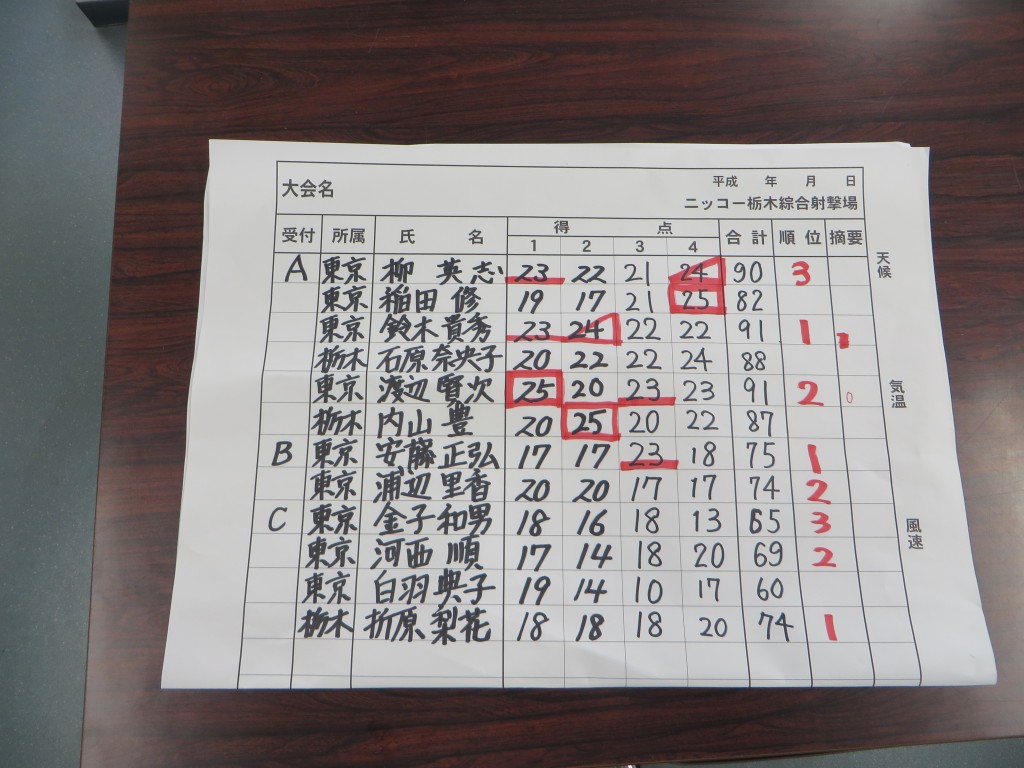 大会名 平成 年 月 日
ニッコー栃木綜合射撃場
受付 所属 氏 名 得 点 合計 順位 摘要
1 2 3 4
天候
A 東京 柳 英志 23 22 21 24 90 3
東京 稲田 修 19 17 21 25 82
東京 鈴木貴秀 23 24 22 22 91 1
栃木 石原奈央子 20 22 22 24 88
東京 渡辺賢次 25 20 23 23 91 2 0
気温
栃木 内山 豊 20 25 20 22 87
B 東京 安藤正弘 17 17 23 18 75 1
東京 浦辺里香 20 20 17 17 74 2
C 東京 金子和男 18 16 18 13 65 3
風速
東京 河西 順 17 14 18 20 69 2
東京 白羽典子 19 14 10 17 60
栃木 折原梨花 18 18 18 20 74 1